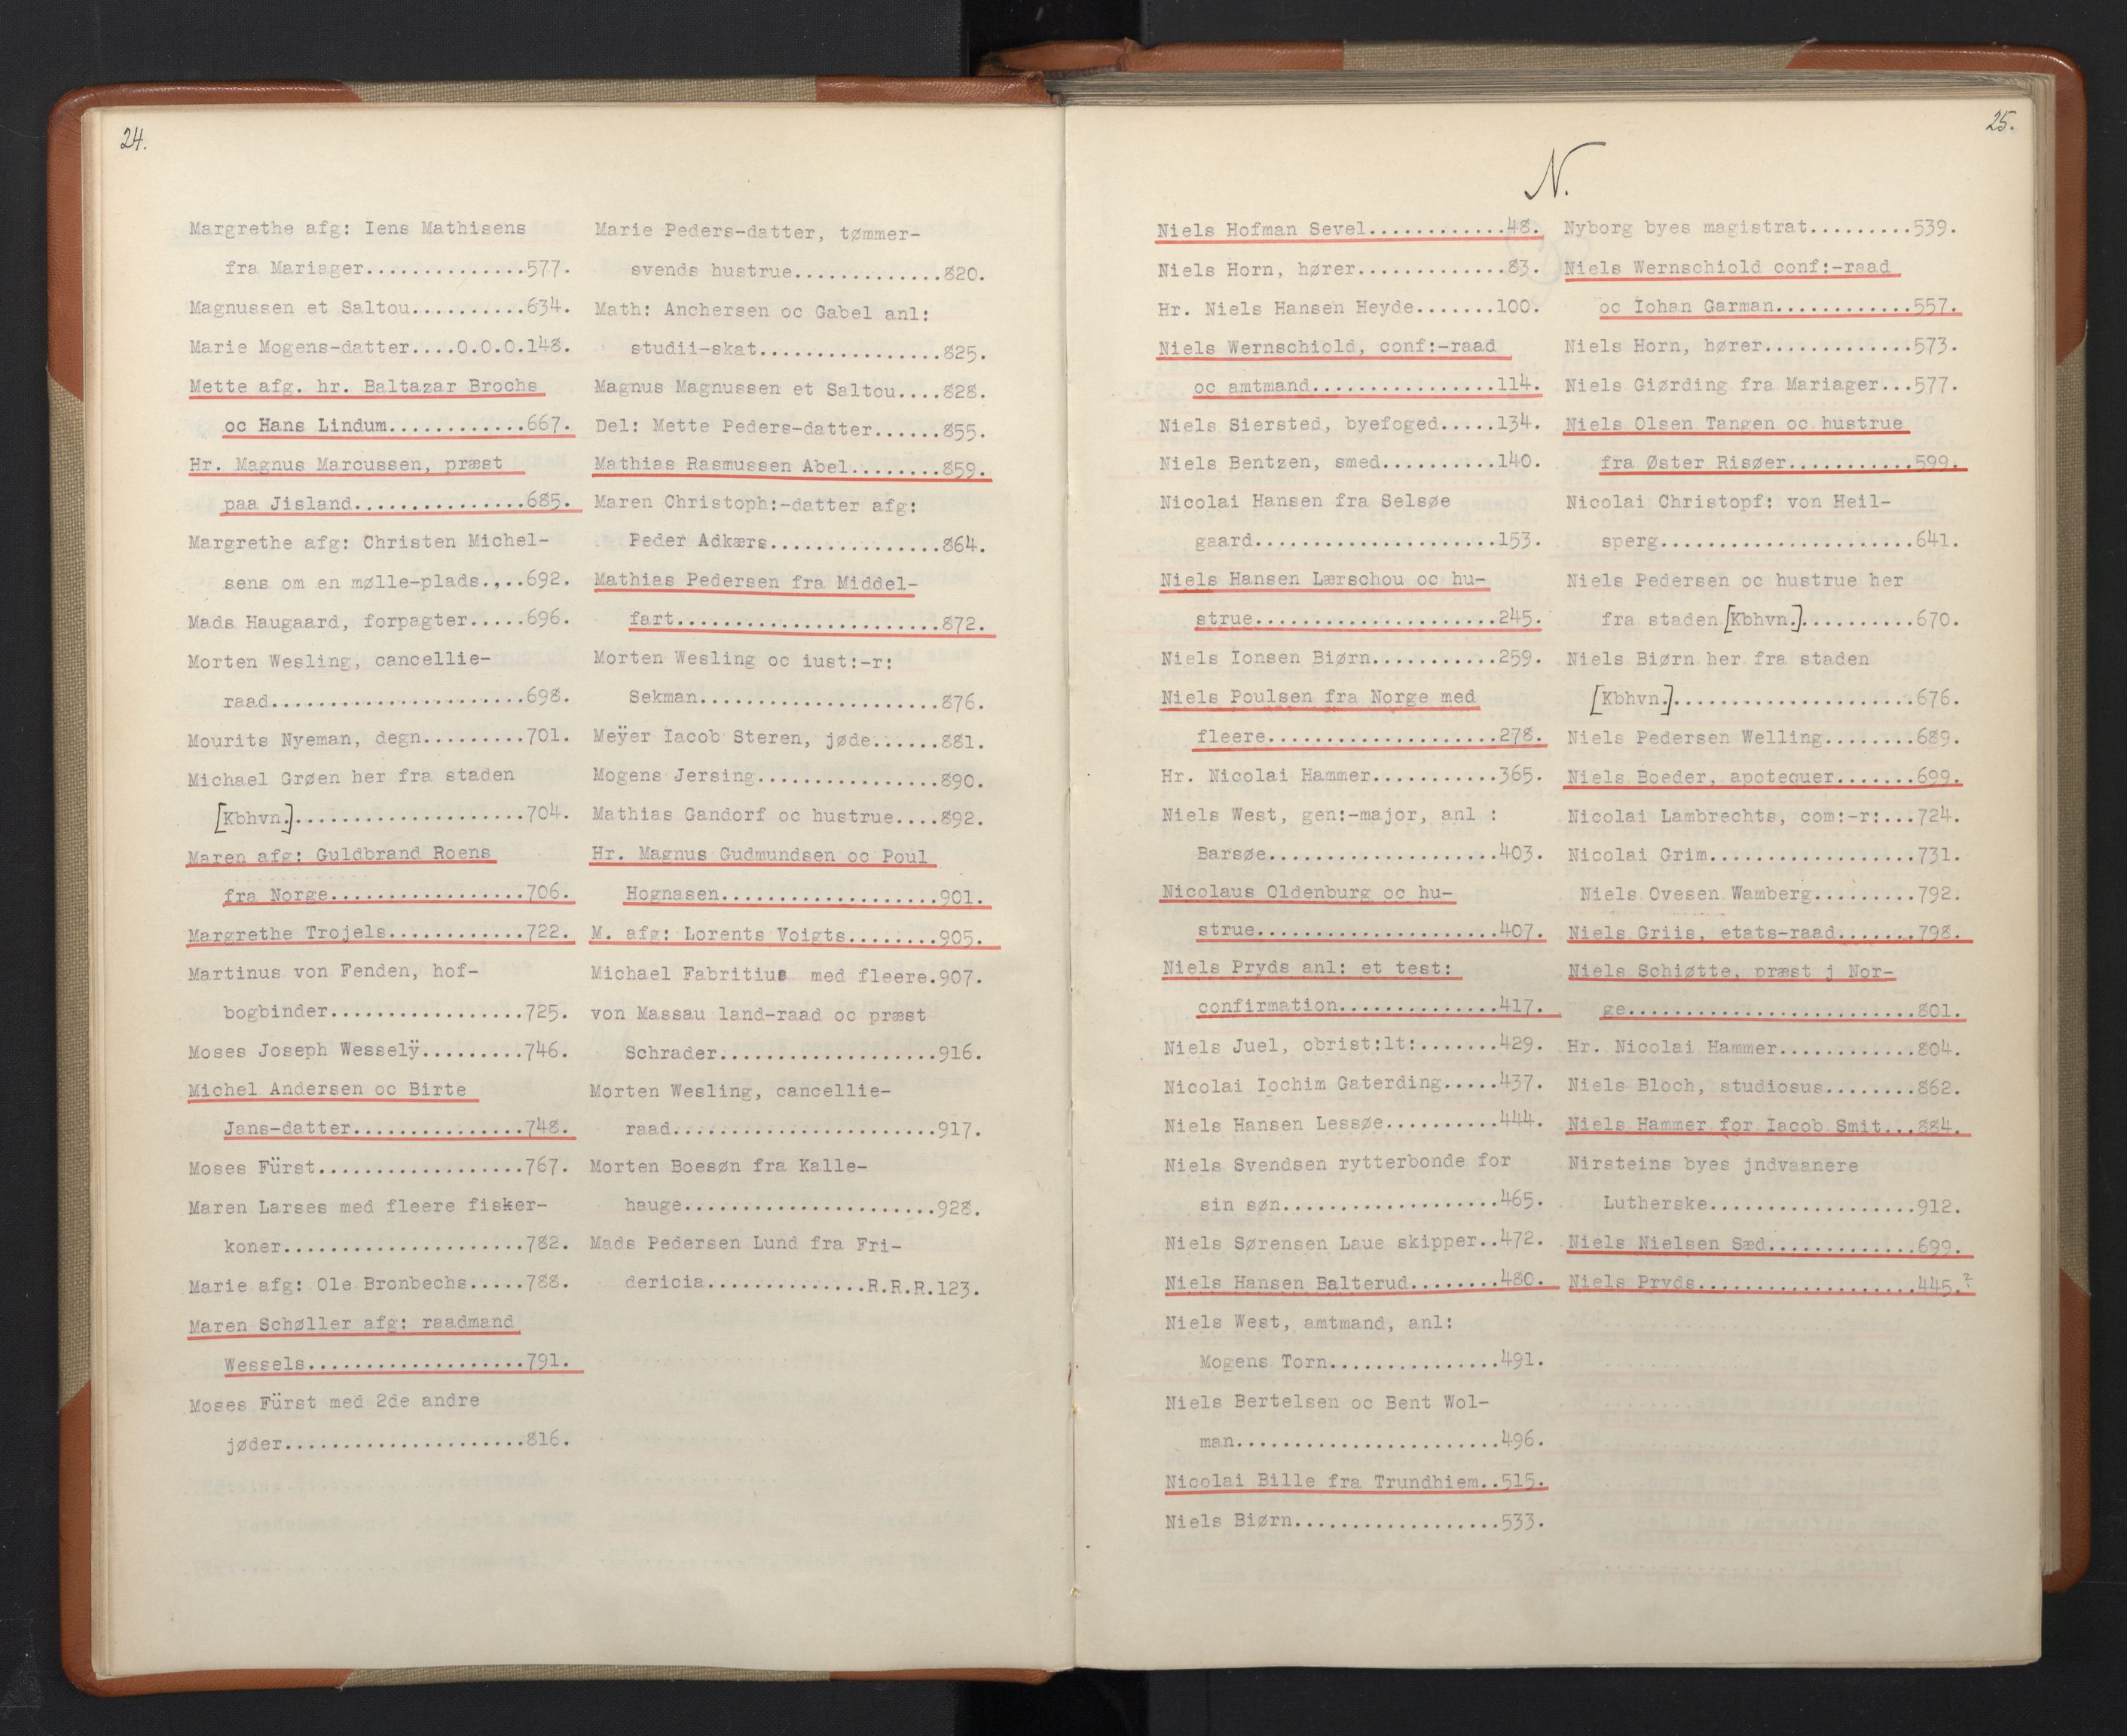 24.
Margrethe afg: Iens Mathisens
fra Mariager..............577.
Magnussen et Saltou..........634.
Marie Mogens-datter....O.O.O.148.
Mette afg. hr. Baltazar Brochs
oc Hans Lindum............667.
Hr. Magnus Marcussen, præst
paa Jisland...............685.
Margrethe afg: Christen Michel-
sens om en mølle-plads.,..692.
Mads Haugaard, forpagter.....696.
Morten Wesling, cancellie-
raad......................698.
Mourits Nyeman, degn.........701.
Michael Grøen her fra staden
[Kbhvn.]....................704.
Maren afg: Guldbrand Roens
fra Norge.................706.
Margrethe Trojels............722.
Martinus von Fenden, hof-
bogbinder.................725.
Moses Joseph Wesselÿ.........746.
Michel Andersen oc Birte
Jans-datter...............748.
Moses Fürst..................767.
Maren Larses med fleere fisker-
koner.....................782.
Marie afg: Ole Bronbechs.....788.
Maren Schøller afg: raadmand
Wessels...................791.
Moses Fürst med 2de andre
jøder.....................816.
Marie Peders-datter, tømmer-
svends hustrue.............820.
Math: Anchersen oc Gabel anl:
studii-skat................825.
Magnus Magnussen et Saltou....828.
Del: Mette Peders-datter......855.
Mathias Rasmussen Abel........859.
Maren Christoph:-datter afg:
Peder Adkærs...............864.
Mathias Pedersen fra Middel-
fart.......................872.
Morten Wesling oc iust:-r:
Sekman.....................876.
Meÿer Iacob Steren, jøde......881.
Mogens Jersing................890.
Mathias Gandorf oc hustrue....892.
Hr. Magnus Gudmundsen oc Poul
Hognasen...................901.
M. afg: Lorents Voigts........905.
Michael Fabritius med fleere.907.
von Massau land-raad oc præst
Schrader...................916.
Morten Wesling, cancellie-
raad.......................917.
Morten Boesøn fra Kalle-
hauge......................928.
Mads Pedersen Lund fra Fri-
dericia..............R.R.R.123.
25.
N.
Niels Hofman Sevel............48.
Niels Horn, hører.............83.
Hr. Niels Hansen Heyde.......100.
Niels Wernschiold, conf:-raad
oc amtmand................114.
Niels Siersted, byefoged.....134.
Niels Bentzen, smed..........140.
Nicolai Hansen fra Selsøe
gaard.....................153.
Niels Hansen Lærschou oc hu-
strue.....................245.
Niels Ionsen Biørn...........259.
Niels Poulsen fra Norge med
fleere....................278.
Hr. Nicolai Hammer...........365.
Niels West, gen:-major, anl :
Barsøe....................403.
Nicolaus Oldenburg oc hu-
strue.....................407.
Niels Pryds anl: et test:
confirmation..............417.
Niels Juel, obrist:lt:.......429.
Nicolai Iochim Gaterding.....437.
Niels Hansen Lessøe..........444.
Niels Svendsen rytterbonde for
sin søn...................465.
Niels Sørensen Laue skipper..472.
Niels Hansen Balterud........480.
Niels West, amtmand, anl:
Mogens Torn...............491.
Niels Bertelsen oc Bent Wol-
man.......................496.
Nicolai Bille fra Trundhiem..515.
Niels Biørn..................533.
Nyborg byes magistrat.........539.
Niels Wernschiold conf:-raad
oc Iohan Garman............557.
Niels Horn, hører.............573.
Niels Giørding fra Mariager...577.
Niels Olsen Tangen oc hustrue
fra Øster Risøer...........599.
Nicolai Christopf: von Heil-
sperg......................641.
Niels Pedersen oc hustrue her
fra staden [Kbhvn.]..........670.
Niels Biørn her fra staden
[Kbhvn.].....................676.
Niels Pedersen Welling........689.
Niels Boeder, apotequer.......699.
Nicolai Lambrechts, com:-r:...724.
Nicolai Grim..................731.
Niels Ovesen Wamberg.........792.
Niels Griis, etats-raad.......798.
Niels Schiøtte, præst j Nor-
ge.........................801.
Hr. Nicolai Hammer............804.
Niels Bloch, studiosus........862.
Niels Hammer for Iacob Smit...884.
Nirsteins byes jndvaanere
Lutherske..................912.
Niels Nielsen Sæd.............699.
Niels Pryds...................445.?